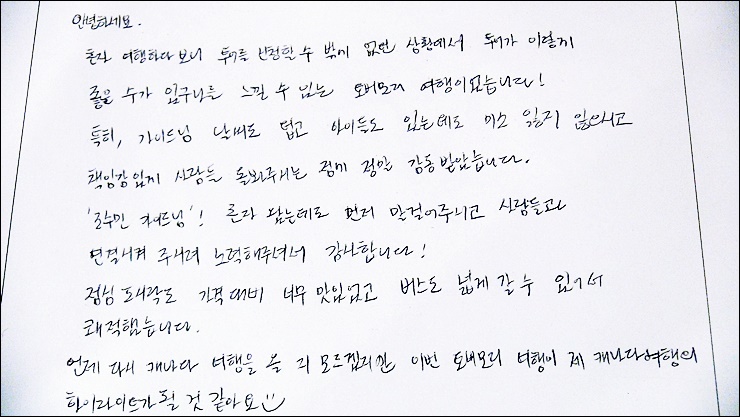 안녕하세요.
혼자 여행하다 보니 투어를 신청할 수 밖에 없던 상황에서 투어가 이렇게
좋을 수가 있구나를 느낄 수 있는 토버모리 여행이었습니다!
특히, 가이드님 날씨도 덥고 아이들도 있는데도 미소 잃지 않으시고
책임감있게 사람들 돌봐주시는 점에 정말 감동받았습니다.
혼자 왔는데도 먼저 말걸어주시고 사람들과
연결시켜 주시려 노력해주셔서 감사합니다!
점심 도시락도 가격 대비 너무 맛있었고 버스도 넓게 갈 수 있어서
쾌적했습니다.
언제 다시 캐나다 여행을 올 지 모르겠지만 이번 토버모리 여행이 제 캐나다여행의
하이라이트가 될 것 같아요